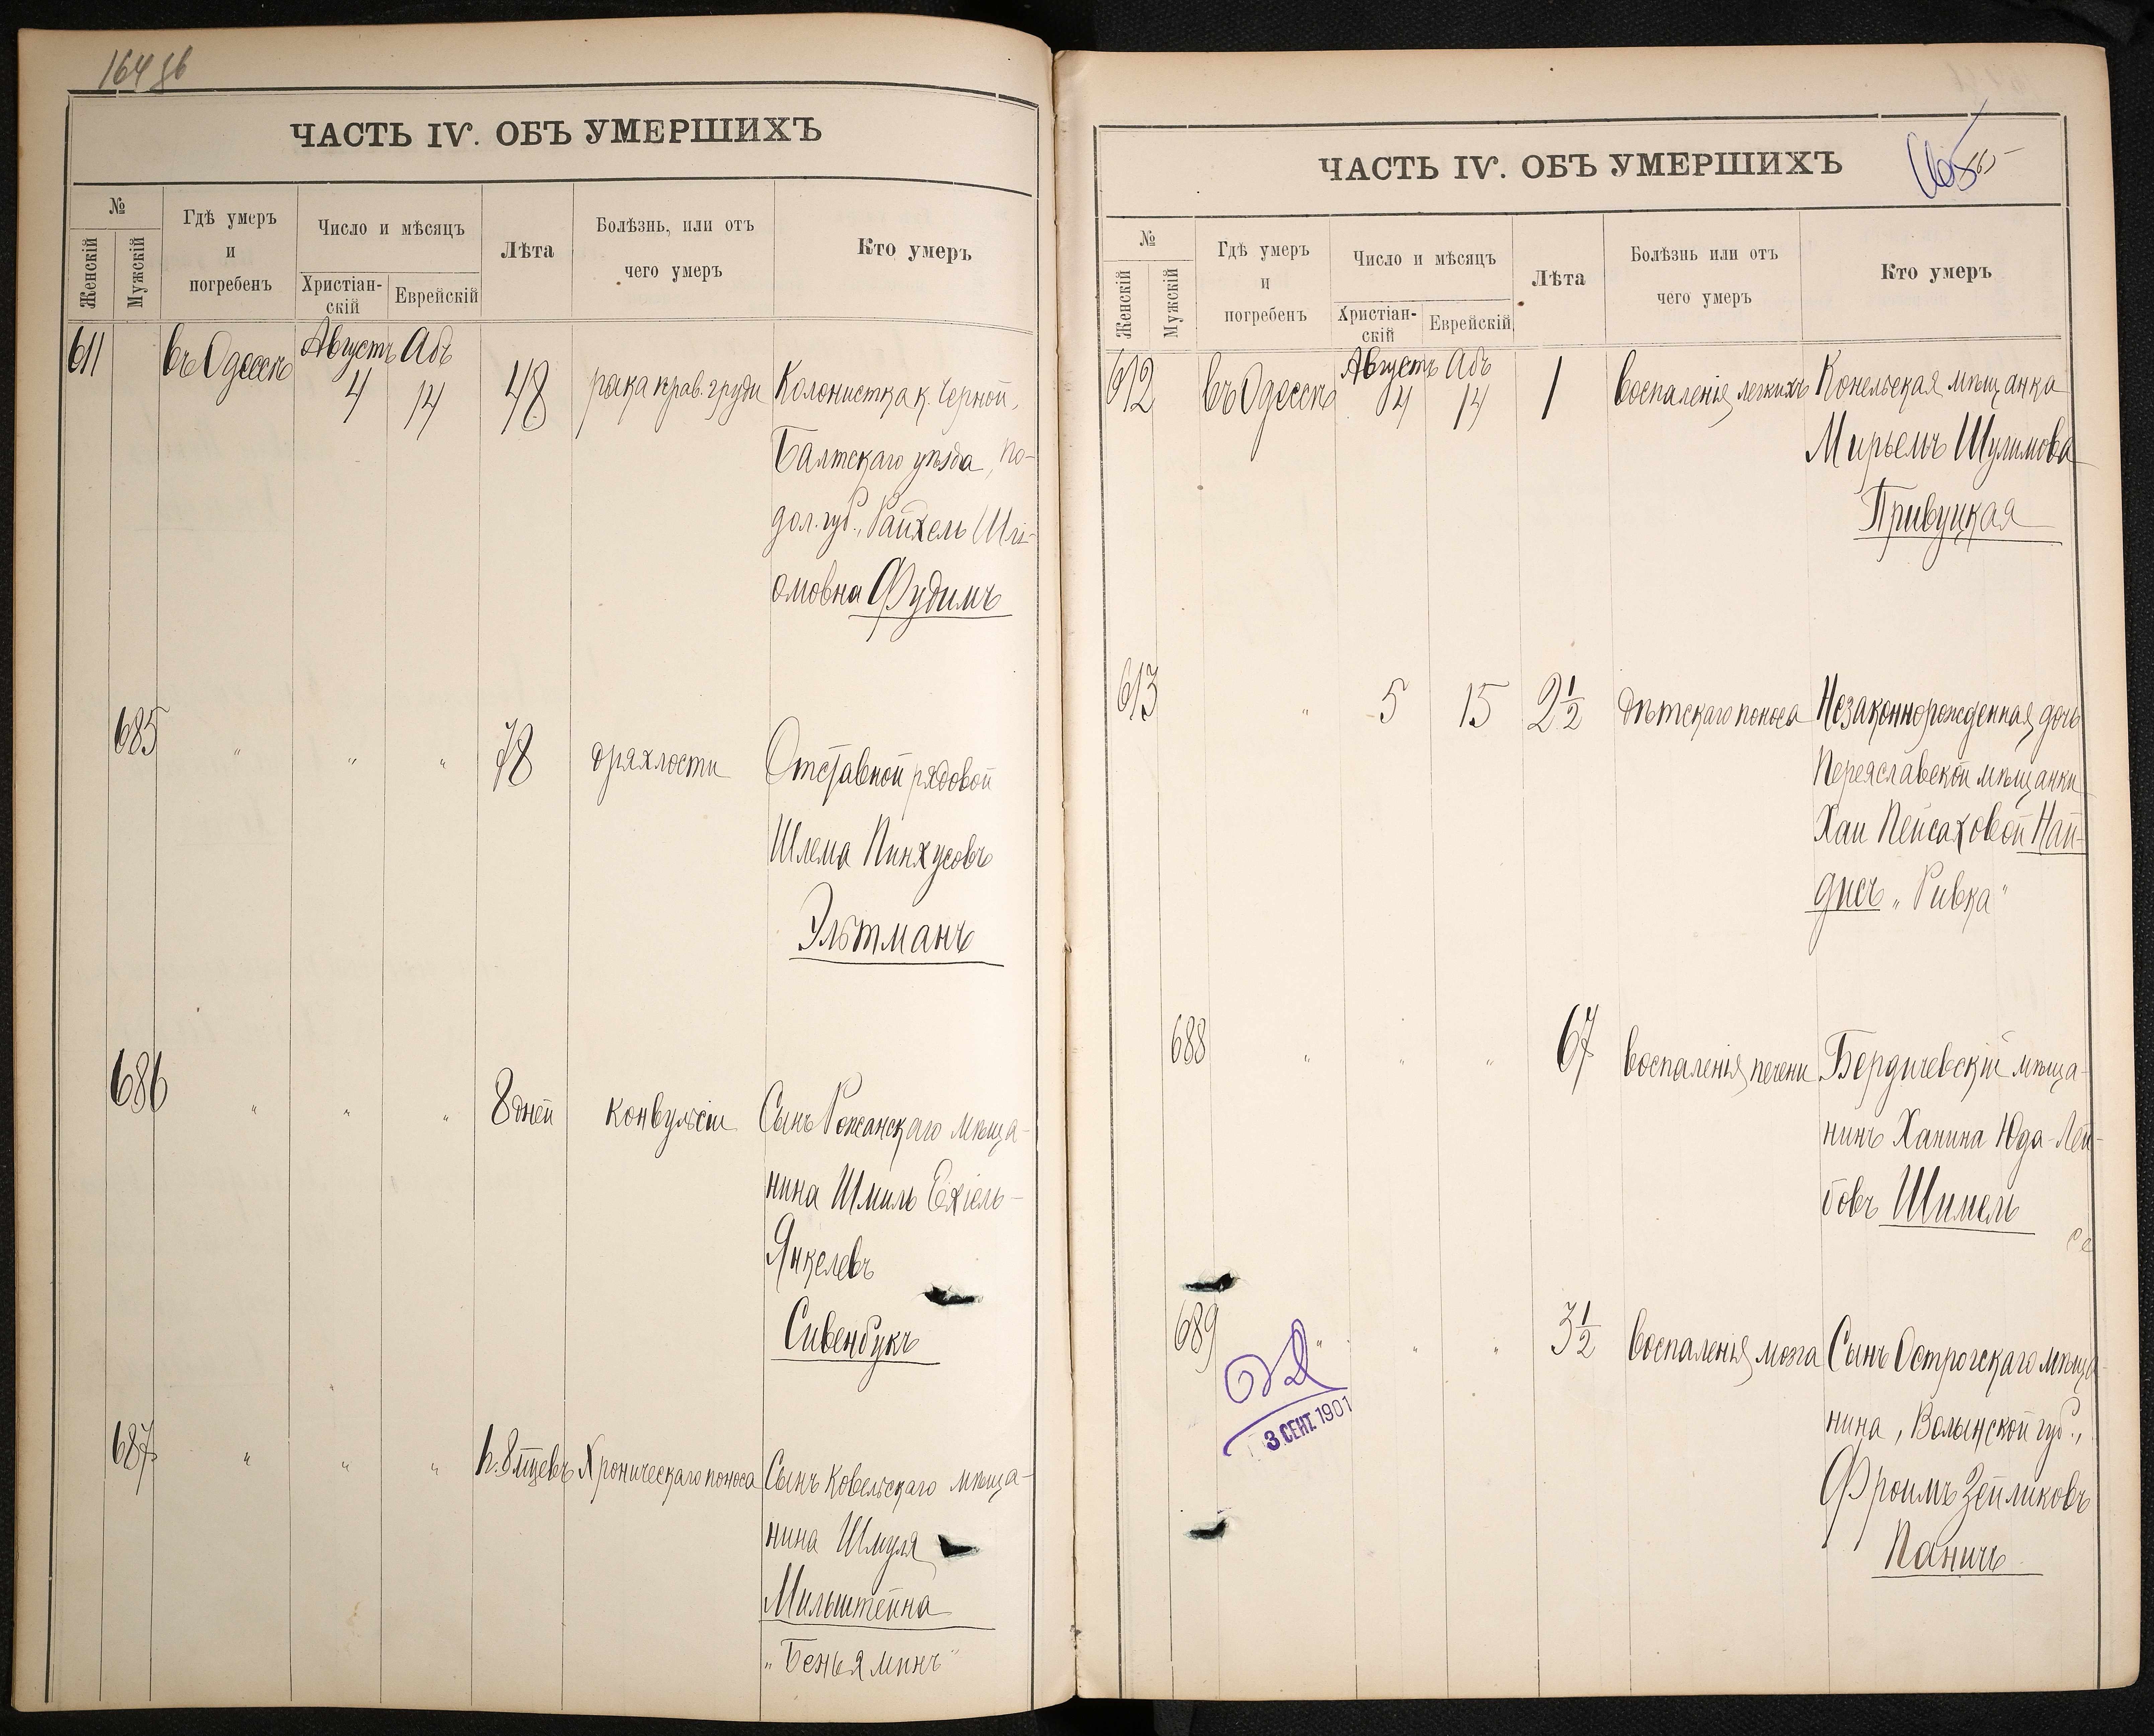 164 об
ЧАСТЬ IV. ОБЪ УМЕРШИХЪ
№
Женскій
Мужскій
Гдѣ умеръ
и
погребенъ
Число и мѣсяцъ
Христіан-
скій
Еврейскій
Лѣта
Болѣзнь, или отъ
чего умеръ
Кто умеръ
611 въ Одессѣ Августъ 4 Абъ 14 48 рака прав. груди Колонистка к. Черной,
Балтскаго уѣзда, По-
дол. губ., Райхель Шлі-
омовна Фудимъ
685 " " " 78 дряхлости Отставной рядовой
Шлема Пинхусовъ
Эльтманъ
686 " " " 8 дней конвульсіи Сынъ Рожанскаго мѣща-
нина Шмиль Ехіель-
Янкелевъ
Сивенбукъ
687 " " " 8 мѣсцевъ Хроническаго поноса Сынъ Ковельскаго мѣща-
нина Шмуля
Мильштейна
„Беньяминъ"
ЧАСТЬ IV. ОБЪ УМЕРШИХЪ
165
№
Женскій
Мужскій
Гдѣ умеръ
и
погребенъ
Число и мѣсяцъ
Христіан-
скій
Еврейскій
Лѣта
Болѣзнь или отъ
чего умеръ
Кто умеръ
612 въ Одессѣ Августъ 4 Абъ 14 1 воспаленія легкихъ Конельская мѣщанка
Мирьемъ Шулимова
Привуцкая
613 " 5 15 2½ дѣтскаго поноса Незаконнорожденная дочь
Переяславской мѣщанки
Хаи Пейсаховой Най-
дисъ „Ривка"
688 " " " 67 воспаленія печени Бердичевскій мѣща-
нинъ Ханина Юда-Лей-
бовъ Шимель
689 " " " 3½ воспаленія мозга Сынъ Острогскаго мѣща-
нина, Волынской губ.,
Фроимъ Зейликовъ
Паничъ
3 СЕНТ. 1901